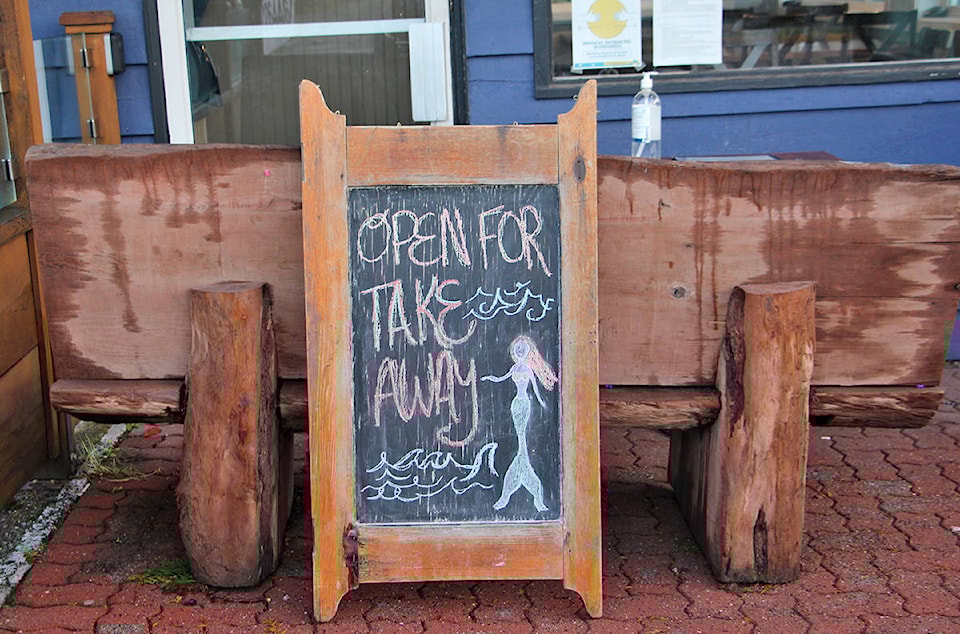 OPEN FOR
TAKE
AWAY